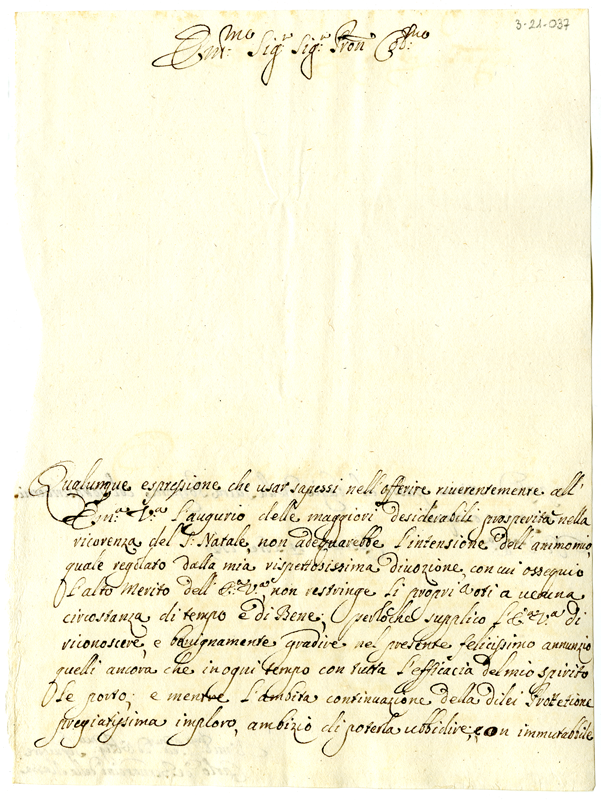 3-21-037
Em.mo Sig.r Sig.r Pron Col.mo
Qualunque espressione che usar sapessi nell'offerire riuerentemente all'
Em.a V.a l'augurio delle maggiori desiderabili prosperità nella
ricorenza del S. Natale, non adequarebbe l'intensione dell'animo mio,
quale regolato dalla mia rispettosissima diuozione, con cui ossequio
l'alto Merito dell'E.a V.a, non restringe li proprj Voti a ueruna
circostanza di tempo è di Bene; perloche supplico l'E.a V.a di
riconoscere, e benignamente gradire nel presente felicissimo annunzio
quelli ancora che in ogni tempo con tutta l'efficacia del mio spirito
le porto; e mentre l'ambita continuazione della di lei Protetione
pregiatissima imploro, ambizio di poterla ubbidire, con immutabile